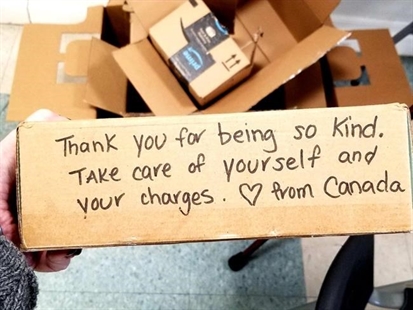 Thank you for being so kind.
TAKE care of yourself and
your charges. ♡ from Canada